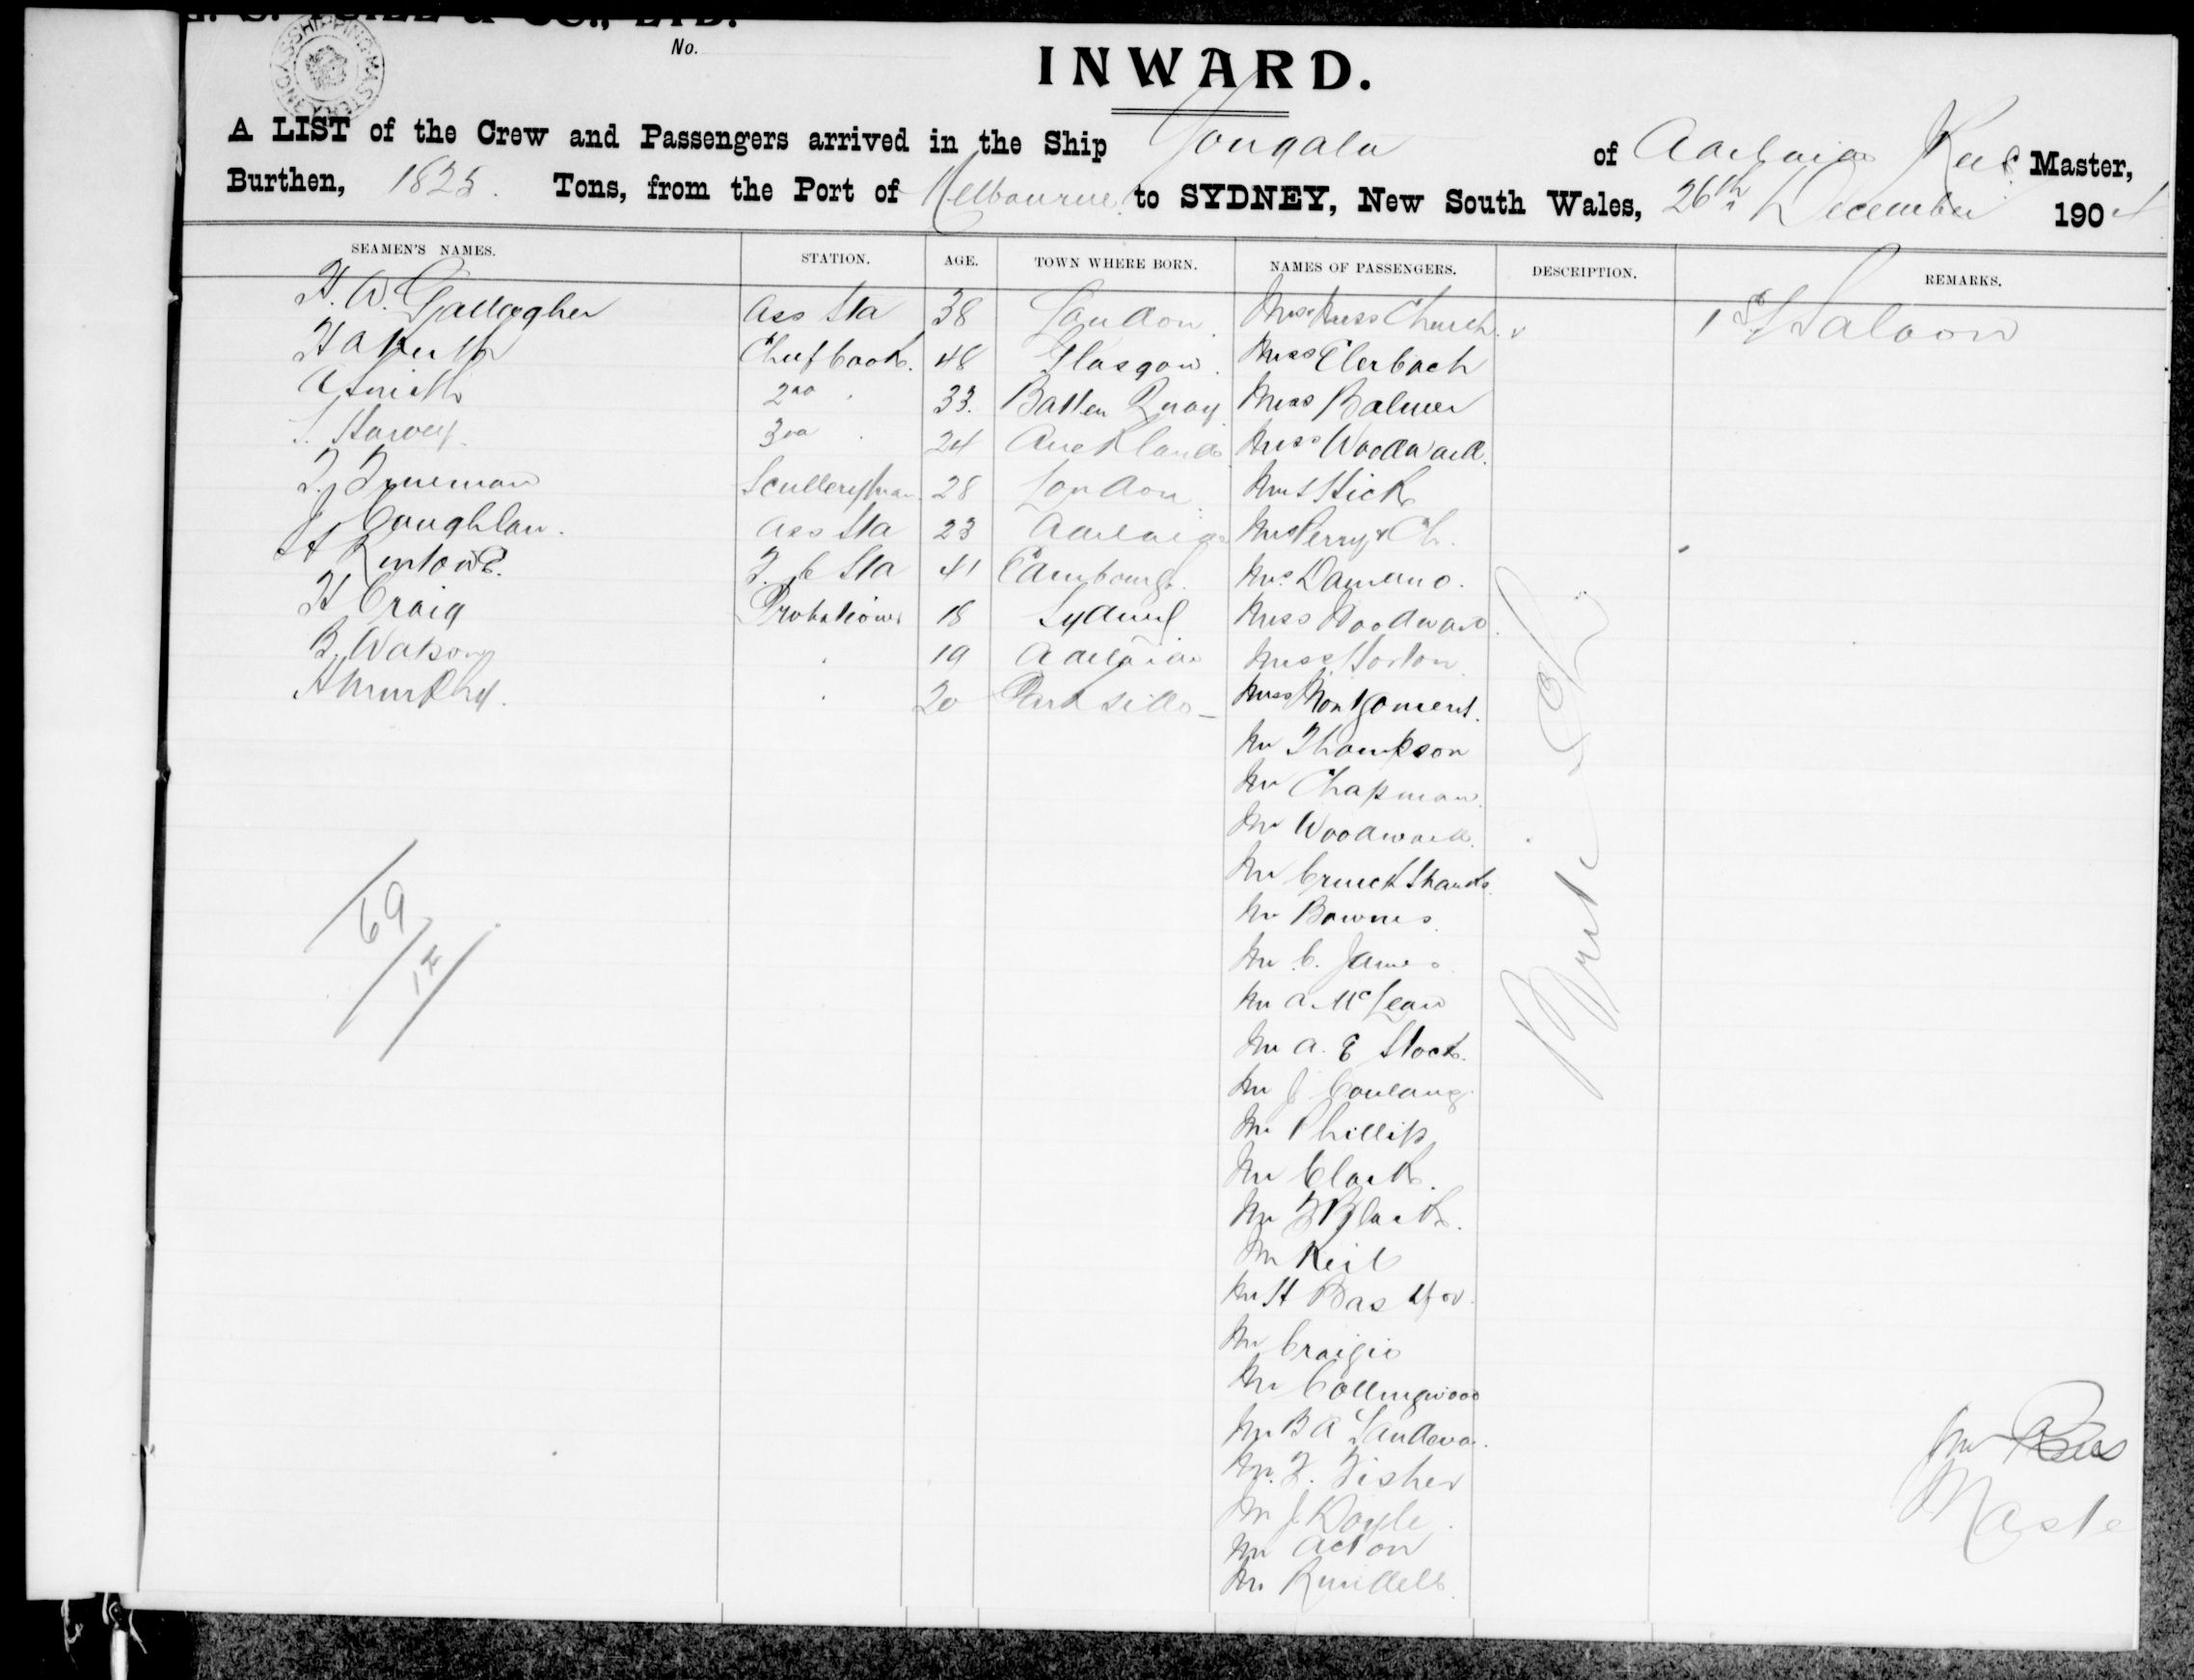 & CO., LTD.
No.
INWARD.
A LIST of the Crew and Passengers arrived in the Ship Yongala of Adelaide Rees Master,
Burthen, 1825. Tons, from the Port of Melbourne to SYDNEY, New South Wales, 26th December 1904
SEAMEN'S NAMES. STATION. AGE. TOWN WHERE BORN. NAMES OF PASSENGERS. DESCRIPTION. REMARKS.
H. W. Gallagher Ass Sta 38 London Mrs & Miss Church 1st Saloon
Chief Cook. 48 Glasgow. Miss Elerbach
A Smith 2nd " 33. Miss Balmer
S. Harvey 3rd " 24 Auckland Miss Woodward.
T. Trueman Sculleryman 28 London Mrs Hick
J Coughlan. Ass Sta 23 Adelaide Mrs Perry & Ch.
F. C Sta 41 Mrs Damano.
H Craig Probationer 18 Sydney Miss Woodward
B. Watson " 19 Adelaide Miss Horton
H Murphy. " 20 Parkside Miss Montgomery.
Mr Thompson
Mr Chapman
Mr Woodward.
Mr Cruickshank
Mr Bownes
Mr C. James
Mr A. McLean
Mr A. E Stock.
Mr J
Mr Phillip
Mr Clark.
Mr F Black.
Mr Keil
Mr H
Mr Craigie
Mr Collingwood
Mr B A
Mr. F. Fisher
Mr J Doyle
Mr Acton
Mr Rundell
British
69
14
Wm Rees
Master